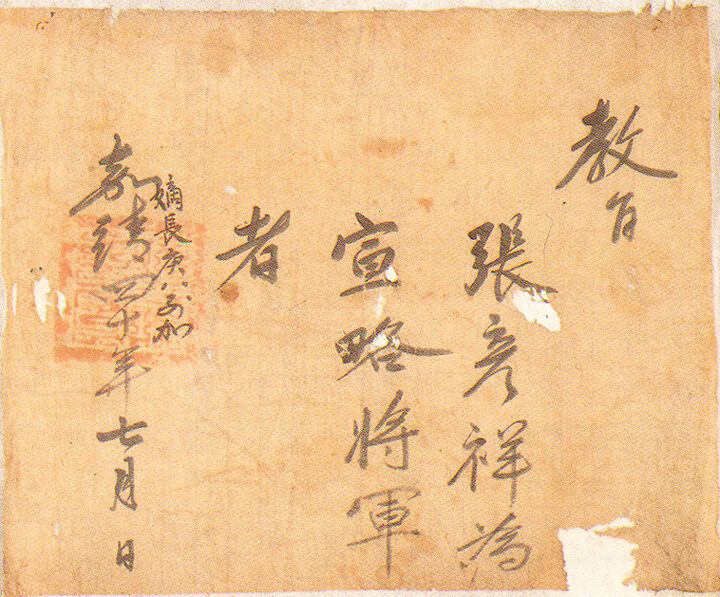 教旨
張彦祥為
宣略將軍
者
嘉靖四十年七月 日
嫡長庚八別加